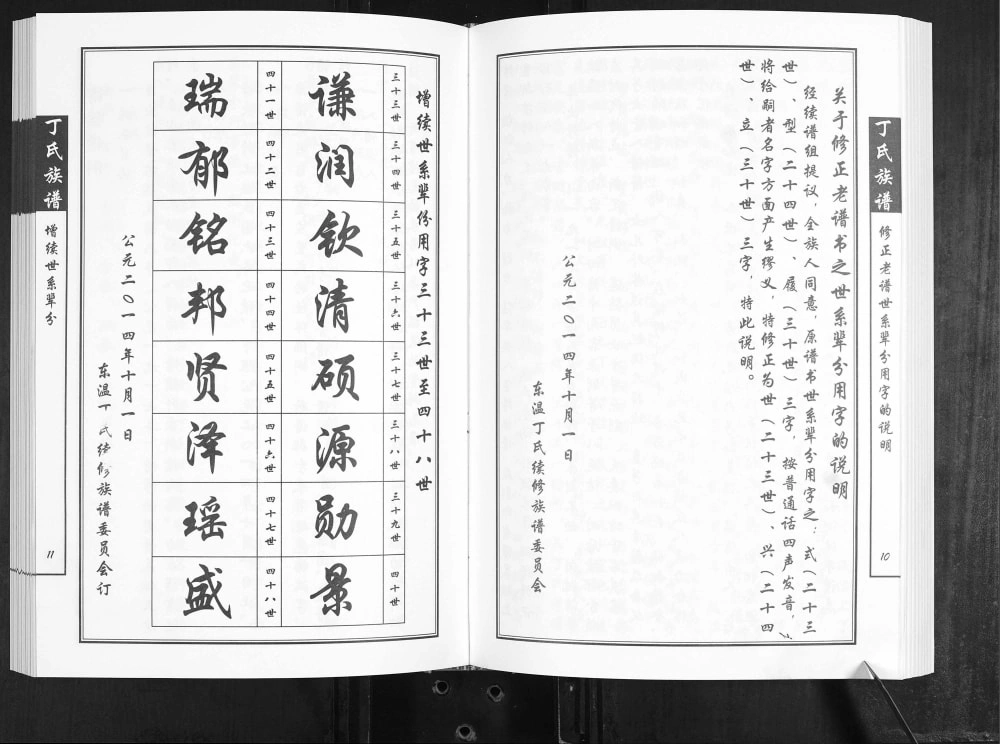 丁氏族谱
修正老谱世系辈分用字的说明
10
关于修正老谱书之世系辈分用字的说明
经续谱组提议，全族人同意，原谱书世系辈分用字之：式（二十三
世）型（二十四世）、履（三十世）三字，按普通话四声发音，
将给嗣者名字方面产生缪义，特修正为世（二十三世）、兴（二十四
世）、立（三十世）三字，特此说明。
公元二〇一四年十月一日
东温丁氏续修族谱委员会
增续世系辈份用字三十三世至四十八世
三十三世 谦
三十四世 润
三十五世 钦
三十六世 清
三十七世 硕
三十八世 源
三十九世 勋
四十世 景
四十一世 瑞
四十二世 郁
四十三世 铭
四十四世 邦
四十五世 贤
四十六世 泽
四十七世 瑶
四十八世 盛
公元二〇一四年十月一日
东温丁氏续修族谱委员会订
丁氏族谱
增续世系辈分
11